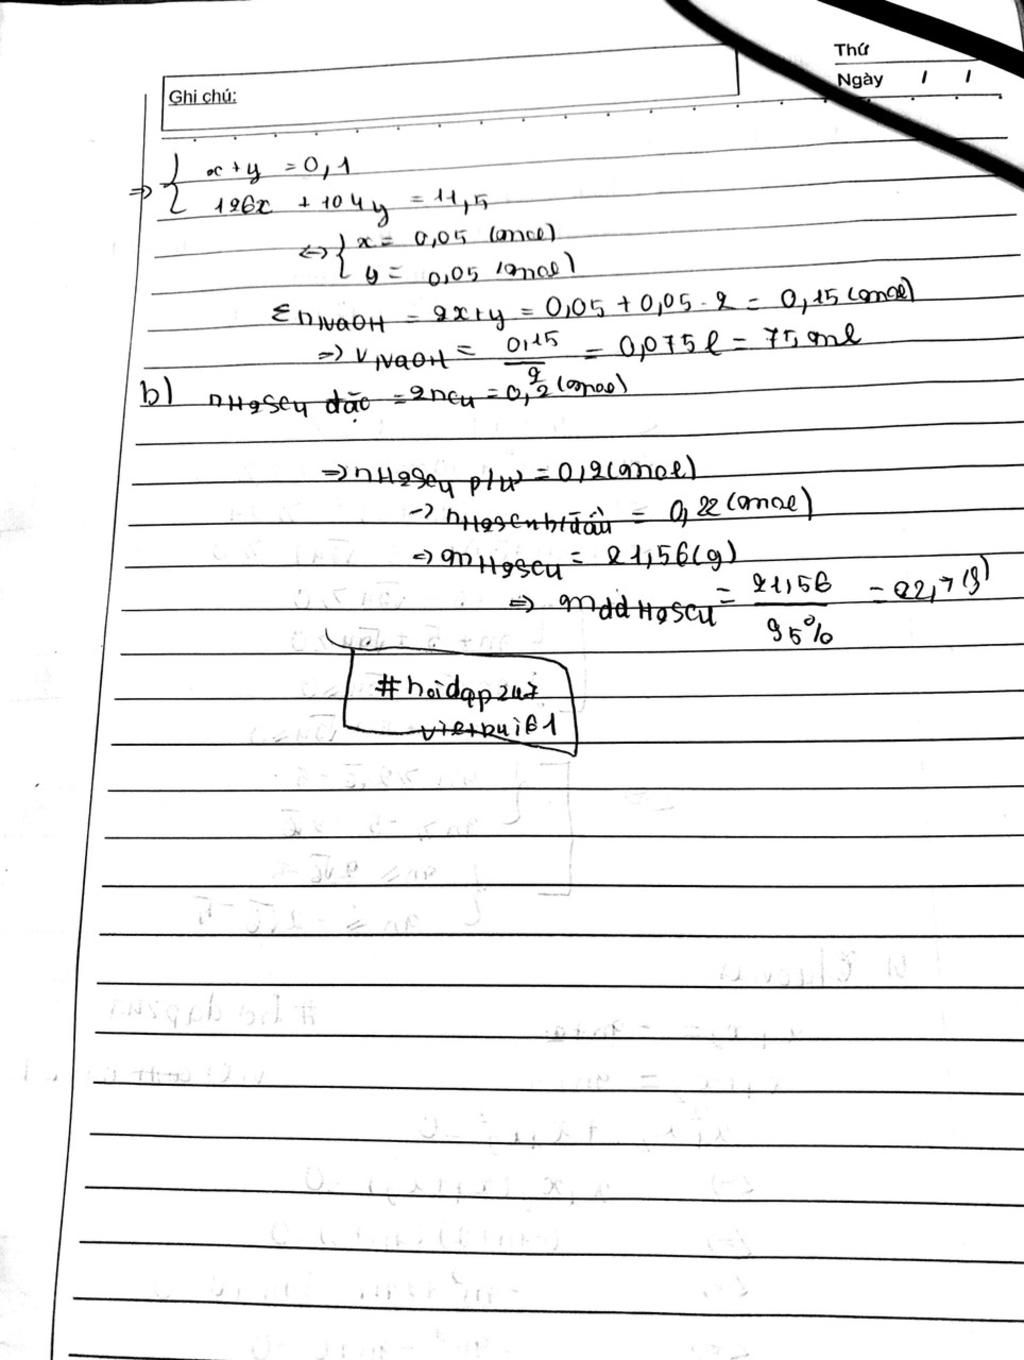 Thứ
Ghi chú:
Ngày / /
=> { x + y = 0,1
126x + 104y = 11,5
<=> { x = 0,05 (mol)
y = 0,05 (mol)
Σ nNaOH = 2x+y = 0,05 + 0,05.2 = 0,15 (mol)
=> VNaOH = 0,15/2 = 0,075 l = 75 ml
b) nH2SO4 đặc = 2nCu = 0,2 (mol)
=> nH2SO4 p/ư = 0,2 (mol)
-> nH2SO4 b/đầu = 0,22 (mol)
=> mH2SO4 = 21,56 (g)
=> mdd H2SO4 = 21,56/95% = 22,7 (g)
#hoidap247